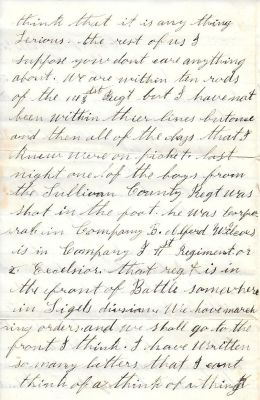 think that it is any thing
Serious. the rest of us I
suppose you dont care anything
about. We are within ten rods
of the 143rd Regt but I have not
been within their lines but once
and then all of the days that I
knew were on picket. last
night one of the boys from
the Sullivan County Regt was
shot in the foot. he was corpo
ral in Company E. Alford
is in Company F 1st Regiment or
Excelsior. that regt is in
the front of Battle somewhere
in Sigels division. We have march
ing orders and we shall go to the
front I think. I have written
so many letters that I cant
think of a think of a thing